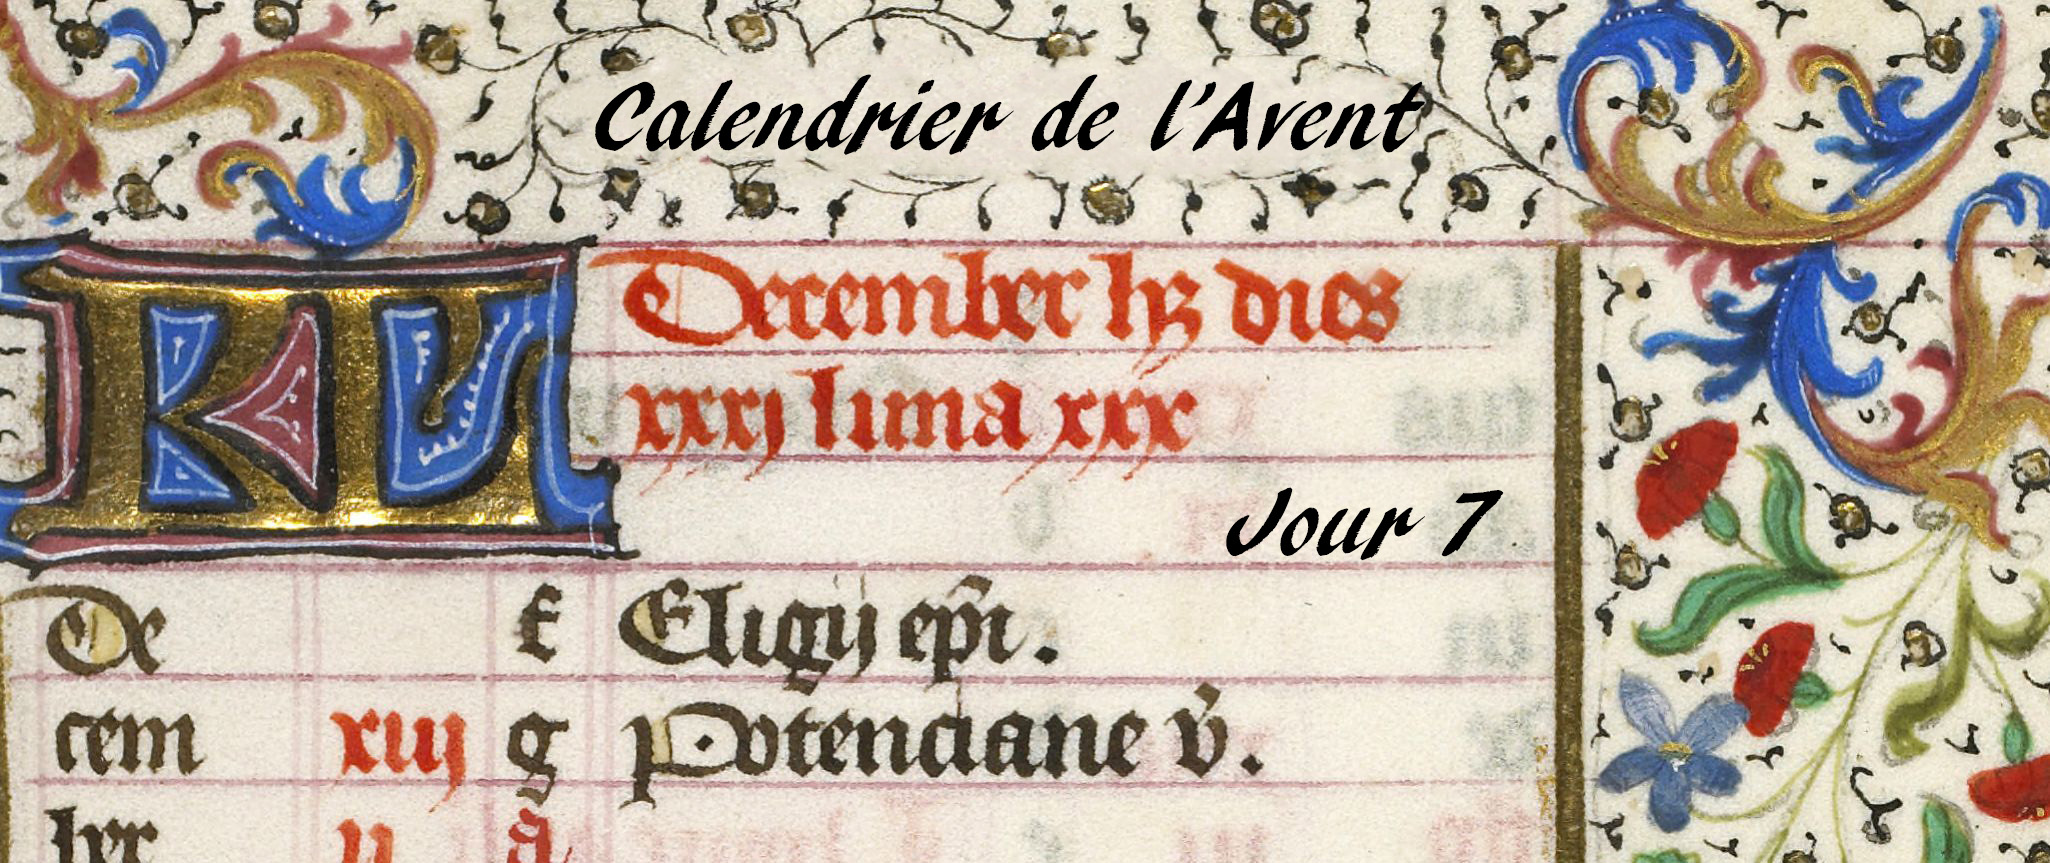 Calendrier de l'Avent
KL December hz dies
xxxj luna xxx
Jour 7
De f Eligij epi.
cem xiij g Potenciane v.